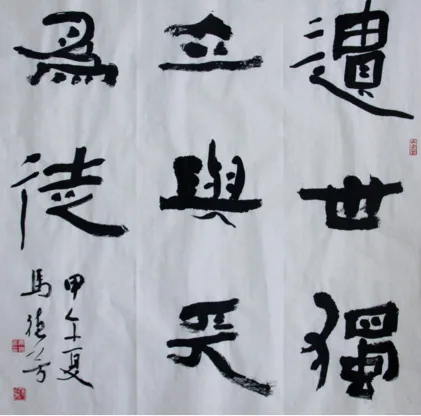 遺世獨
立與天
為徒
甲午夏
馬